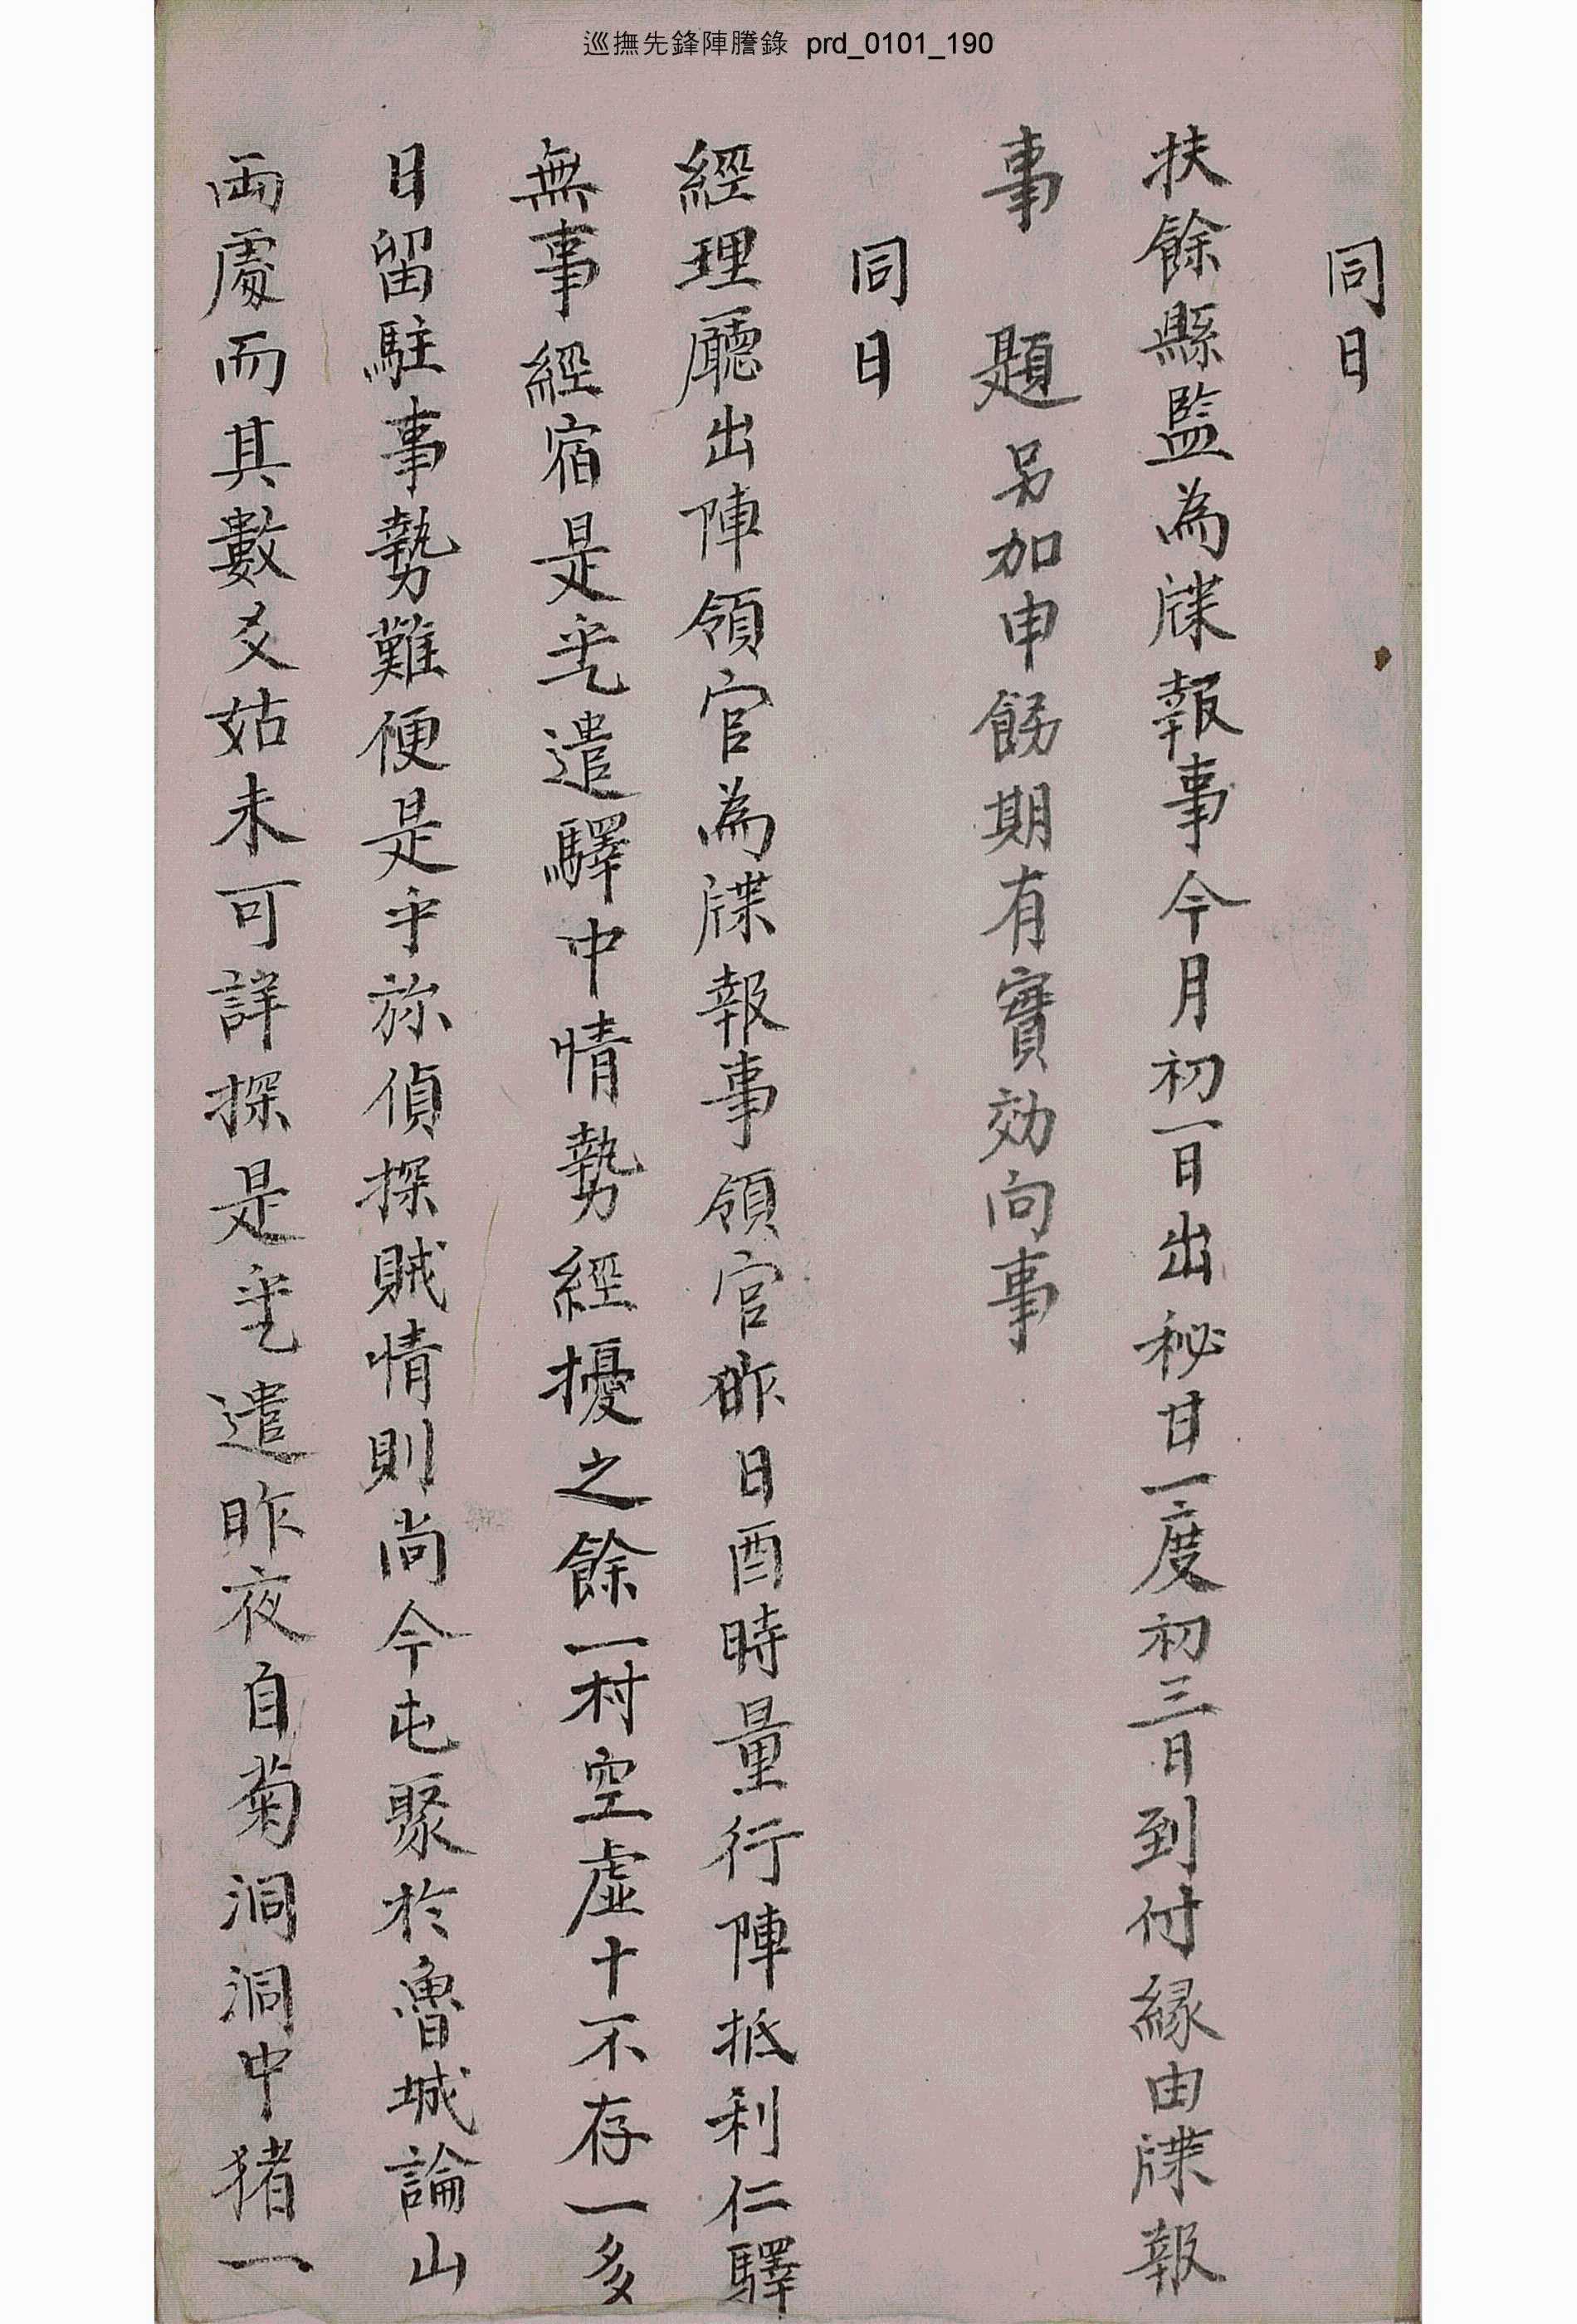 巡撫先鋒陣謄錄 prd_0101_190
同日
扶餘縣監為牒報事今月初一日出秘甘一度初三日到付緣由牒報
事 題另加申飭期有實効向事
同日
經理廳出陣領官為牒報事領官昨日酉時量行陣抵利仁驛
無事經宿是乎乙遣驛中情勢經擾之餘一村空虛十不存一多
日留駐事勢難便是乎旀偵探賊情則尚今屯聚於魯城論山
両處而其數爻姑未可詳探是乎乙遣昨夜自菊洞洞中猪一